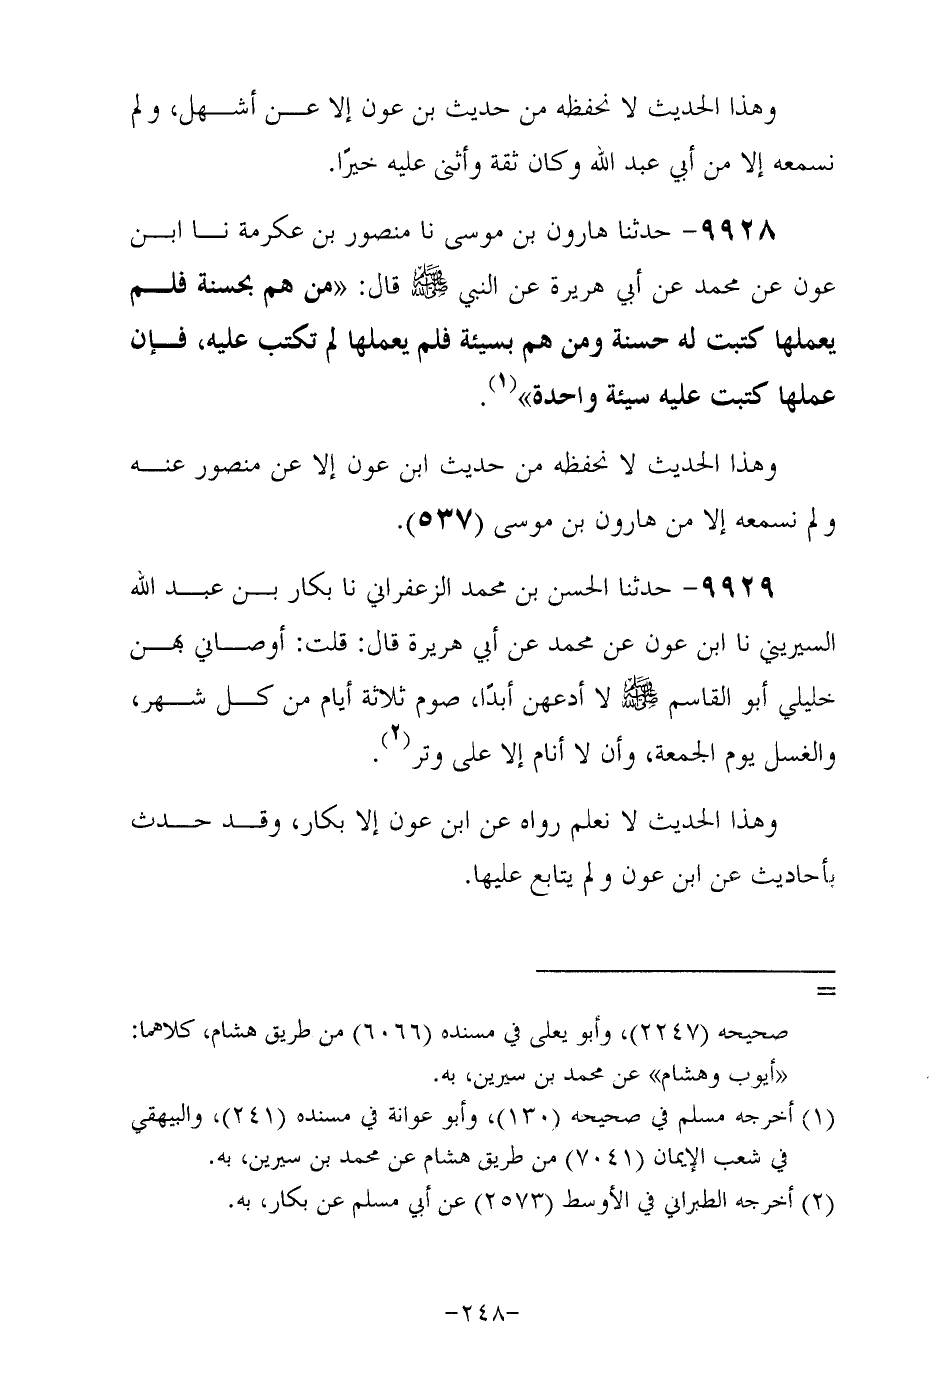 وهذا الحديث لا نحفظه من حديث بن عون إلا عن أشهل، ولم
نسمعه إلا من أبي عبد الله وكان ثقة وأثنى عليه خيرًا.
٩٩٢٨- حدثنا هارون بن موسى نا منصور بن عكرمة نا ابن
عون عن محمد عن أبي هريرة عن النبي ﷺ قال: «من هم بحسنة فلم
يعملها كتبت له حسنة ومن هم بسيئة فلم يعملها لم تكتب عليه، فإن
عملها كتبت عليه سيئة واحدة»(١).
وهذا الحديث لا نحفظه من حديث ابن عون إلا عن منصور عنه
ولم نسمعه إلا من هارون بن موسى (٥٣٧).
٩٩٢٩- حدثنا الحسن بن محمد الزعفراني نا بكار بن عبد الله
السيريني نا ابن عون عن محمد عن أبي هريرة قال: قلت: أوصاني بهن
خليلي أبو القاسم ﷺ لا أدعهن أبدًا، صوم ثلاثة أيام من كل شهر،
والغسل يوم الجمعة، وأن لا أنام إلا على وتر(٢).
وهذا الحديث لا نعلم رواه عن ابن عون إلا بكار، وقد حدث
بأحاديث عن ابن عون ولم يتابع عليها.
=
صحيحه (٢٢٤٧)، وأبو يعلى في مسنده (٦٠٦٦) من طريق هشام، كلاهما:
«أيوب وهشام» عن محمد بن سيرين، به.
(١) أخرجه مسلم في صحيحه (١٣٠)، وأبو عوانة في مسنده (٢٤١)، والبيهقي
في شعب الإيمان (٧٠٤١) من طريق هشام عن محمد بن سيرين، به.
(٢) أخرجه الطبراني في الأوسط (٢٥٧٣) عن أبي مسلم عن بكار، به.
-٢٤٨-